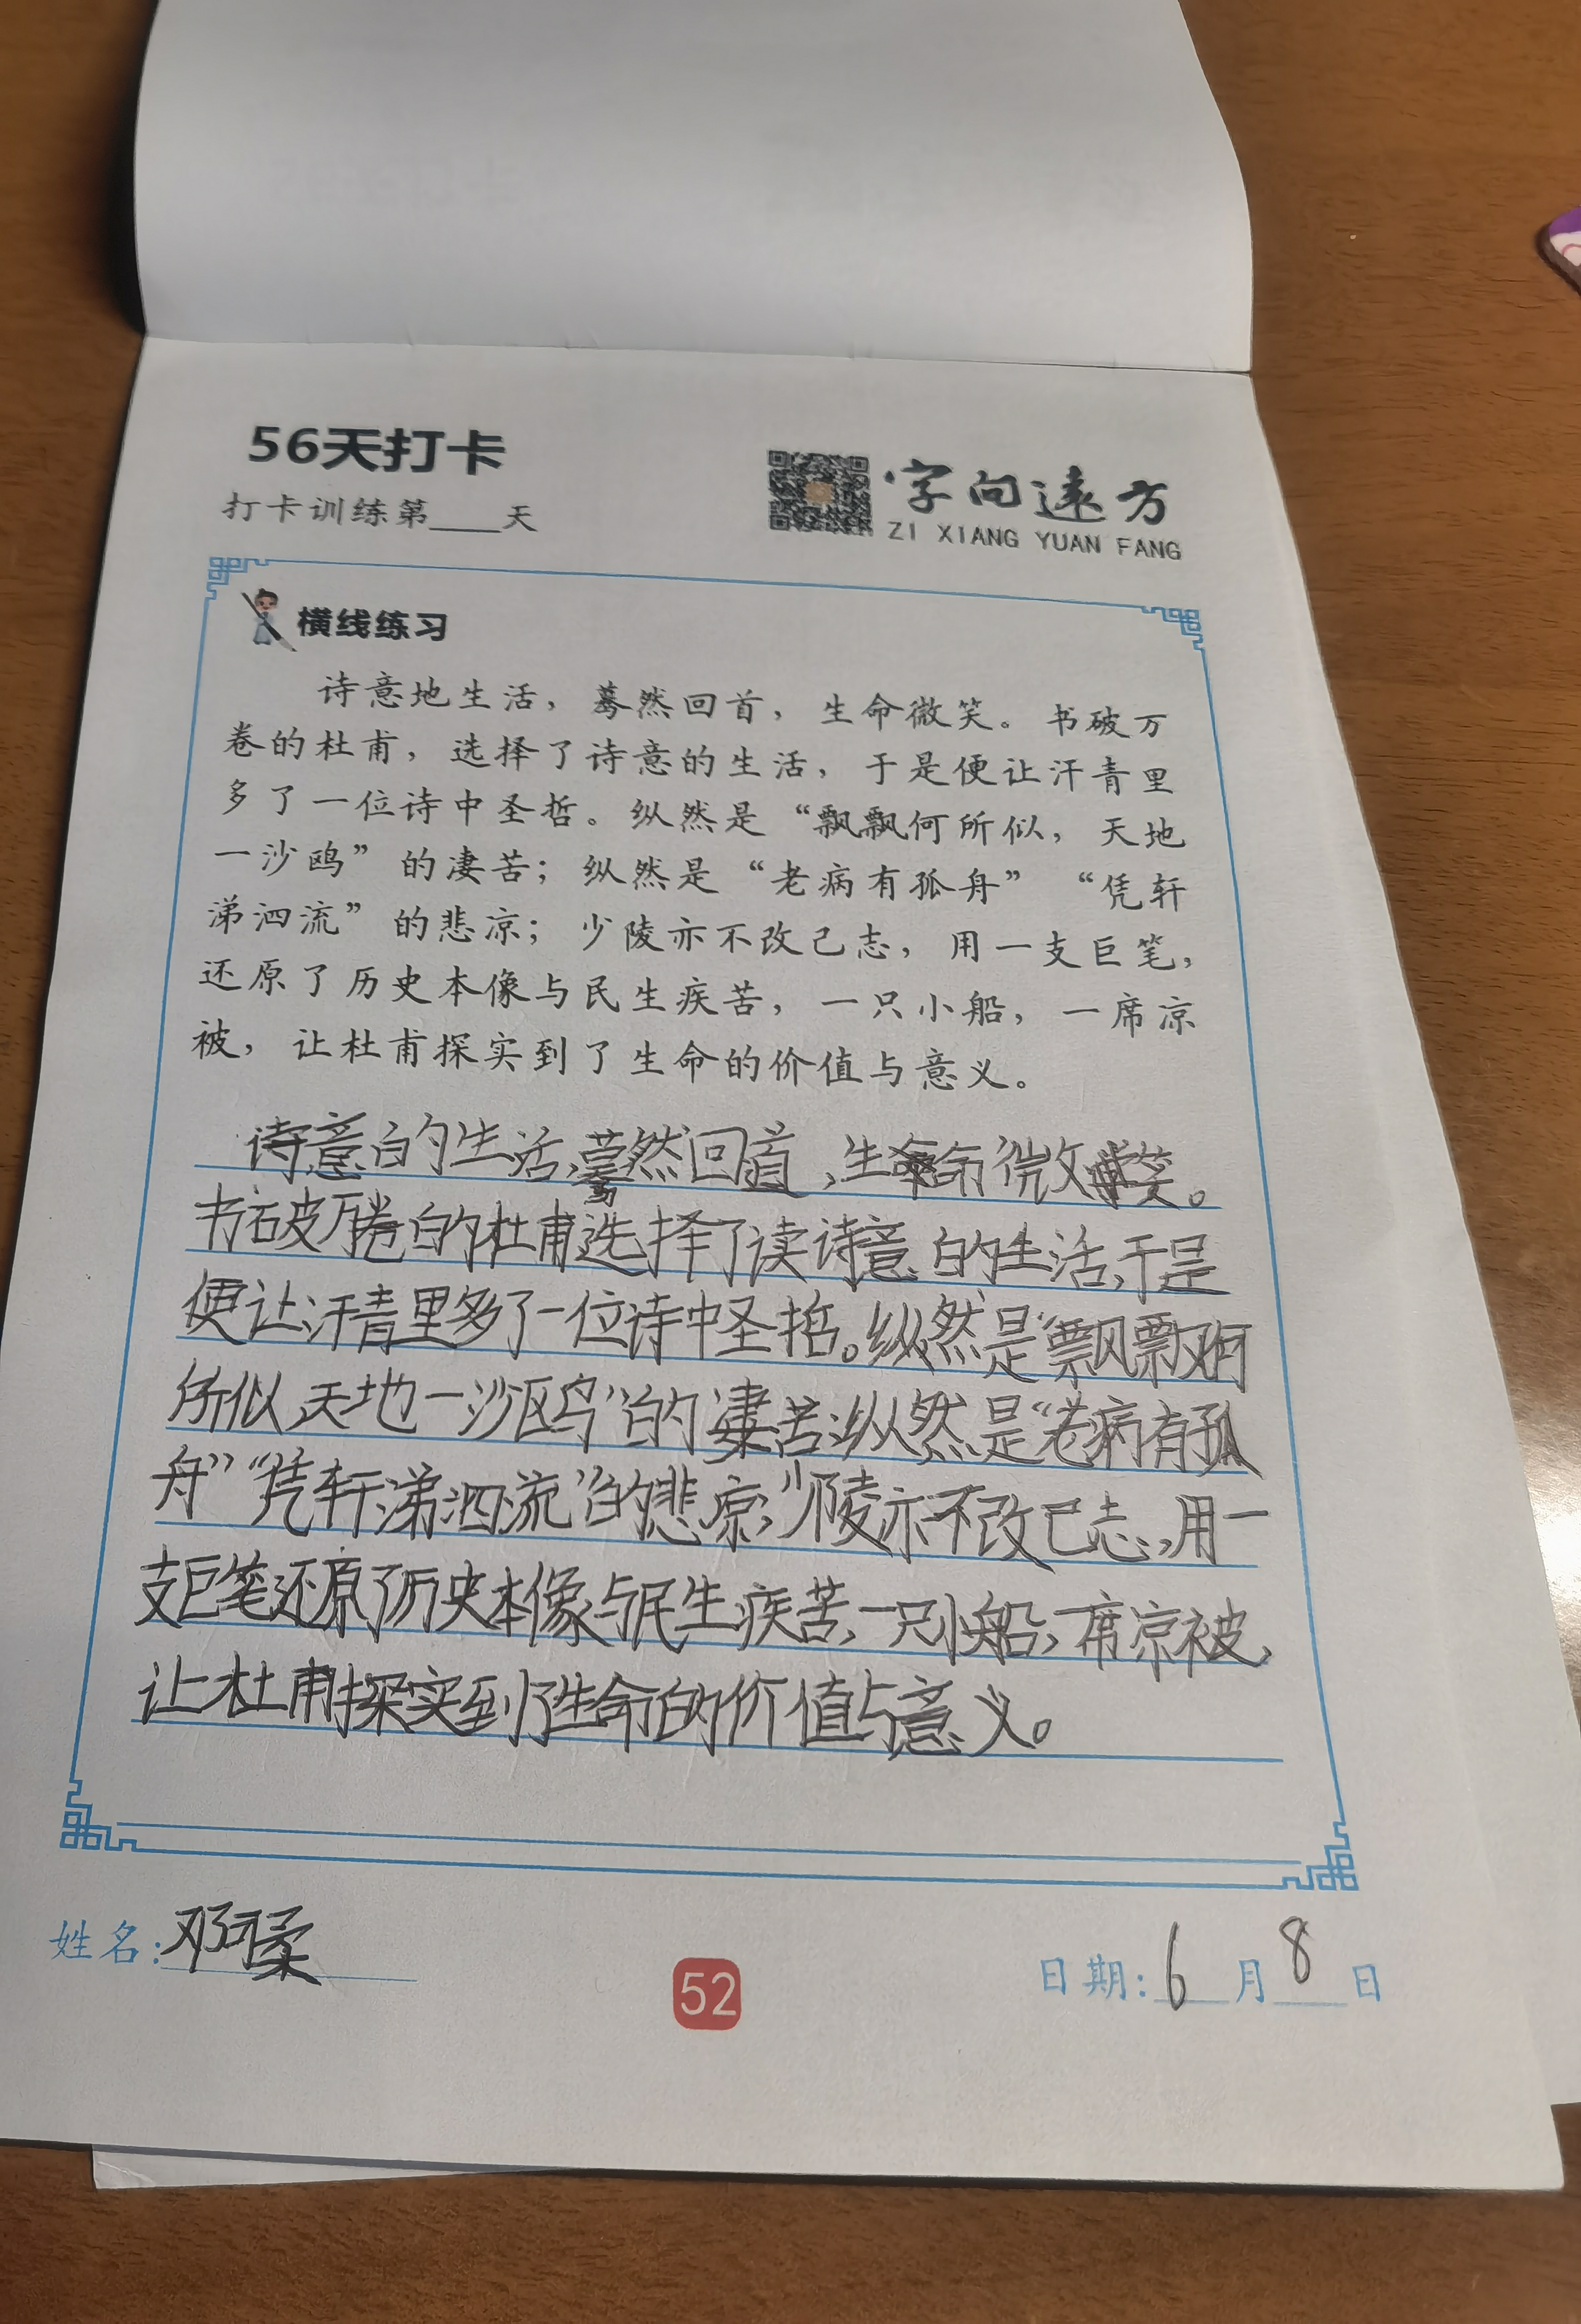 56天打卡
打卡训练第____天
字向远方
ZI XIANG YUAN FANG
横线练习
诗意地生活，蓦然回首，生命微笑。书破万
卷的杜甫，选择了诗意的生活，于是便让汗青里
多了一位诗中圣哲。纵然是“飘飘何所似，天地
一沙鸥”的凄苦；纵然是“老病有孤舟”“凭轩
涕泗流”的悲凉；少陵亦不改己志，用一支巨笔，
还原了历史本像与民生疾苦，一只小船，一席凉
被，让杜甫探实到了生命的价值与意义。
诗意的生活，蓦然回首，生命微笑。
书破万卷的杜甫选择了读诗意的生活，于是
便让汗青里多了一位诗中圣哲。纵然是“飘飘何
所似，天地一沙鸥”的凄苦；纵然是“老病有孤
舟”“凭轩涕泗流”的悲凉；少陵亦不改己志，用一
支巨笔还原了历史本像与民生疾苦，一只小船，一席凉被，
让杜甫探实到了生命的价值与意义。
姓名：邓可柔
52
日期：6月8日